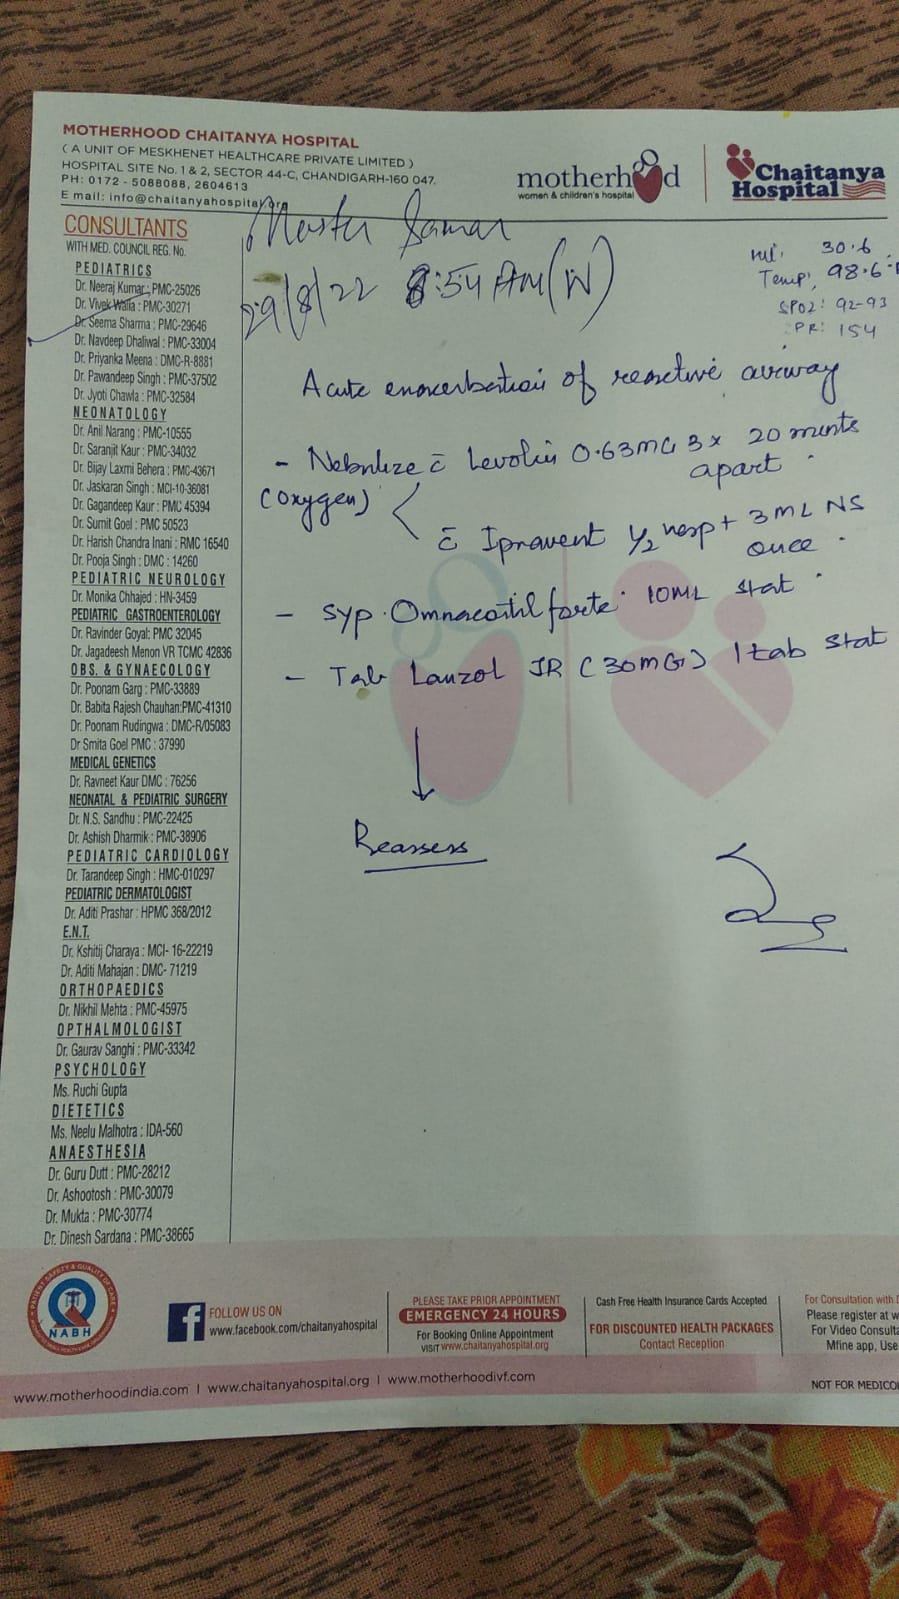 MOTHERHOOD CHAITANYA HOSPITAL
( A UNIT OF MESKHENET HEALTHCARE PRIVATE LIMITED )
HOSPITAL SITE No. 1 & 2, SECTOR 44-C, CHANDIGARH-160 047.
PH: 0172 - 5088088, 2604613
E mail: info@chaitanyahospital.org
motherhood
women & children's hospital
Chaitanya
Hospital
CONSULTANTS
WITH MED. COUNCIL REG. No.
PEDIATRICS
Dr. Neeraj Kumar : PMC-25026
Dr. Vivek Walia : PMC-30271
Dr. Seema Sharma : PMC-29646
Dr. Navdeep Dhaliwal : PMC-33004
Dr. Priyanka Meena : DMC-R-8881
Dr. Pawandeep Singh : PMC-37502
Dr. Jyoti Chawla : PMC-32584
NEONATOLOGY
Dr. Anil Narang : PMC-10555
Dr. Saranjit Kaur : PMC-34032
Dr. Bijay Laxmi Behera : PMC-43671
Dr. Jaskaran Singh : MCI-10-36081
Dr. Gagandeep Kaur : PMC 45394
Dr. Sumit Goel : PMC 50523
Dr. Harish Chandra Inani : RMC 16540
Dr. Pooja Singh : DMC : 14260
PEDIATRIC NEUROLOGY
Dr. Monika Chhajed : HN-3459
PEDIATRIC GASTROENTEROLOGY
Dr. Ravinder Goyal: PMC 32045
Dr. Jagadeesh Menon VR TCMC 42836
OBS. & GYNAECOLOGY
Dr. Poonam Garg : PMC-33889
Dr. Babita Rajesh Chauhan:PMC-41310
Dr. Poonam Rudingwa : DMC-R/05083
Dr Smita Goel PMC : 37990
MEDICAL GENETICS
Dr. Ravneet Kaur DMC : 76256
NEONATAL & PEDIATRIC SURGERY
Dr. N.S. Sandhu : PMC-22425
Dr. Ashish Dharmik : PMC-38906
PEDIATRIC CARDIOLOGY
Dr. Tarandeep Singh : HMC-010297
PEDIATRIC DERMATOLOGIST
Dr. Aditi Prashar : HPMC 368/2012
E.N.T.
Dr. Kshitij Charaya : MCI- 16-22219
Dr. Aditi Mahajan : DMC- 71219
ORTHOPAEDICS
Dr. Nikhil Mehta : PMC-45975
OPTHALMOLOGIST
Dr. Gaurav Sanghi : PMC-33342
PSYCHOLOGY
Ms. Ruchi Gupta
DIETETICS
Ms. Neelu Malhotra : IDA-560
ANAESTHESIA
Dr. Guru Dutt : PMC-28212
Dr. Ashootosh : PMC-30079
Dr. Mukta : PMC-30774
Dr. Dinesh Sardana : PMC-38665
Master
29/8/22 8:54 AM (W)
30.6
Temp: 98.6
SPO2: 92-93
PR: 154
Acute exacerbation of reactive airway
- Nebulize c̄ Levolin 0.63MG 3x 20 mints
apart
(oxygen)
c̄ Ipravent 1/2 resp + 3ML NS
once
- Syp. Omnacortil forte 10ML stat
- Tab Lanzol JR (30MG) 1 tab stat
Reassess
PATIENT SAFETY & QUALITY OF CARE
NABH
FOLLOW US ON
www.facebook.com/chaitanyahospital
PLEASE TAKE PRIOR APPOINTMENT
EMERGENCY 24 HOURS
For Booking Online Appointment
VISIT www.chaitanyahospital.org
Cash Free Health Insurance Cards Accepted
FOR DISCOUNTED HEALTH PACKAGES
Contact Reception
For Consultation with
Please register at
For Video
Mfine app, Use
www.motherhoodindia.com | www.chaitanyahospital.org | www.motherhoodivf.com
NOT FOR